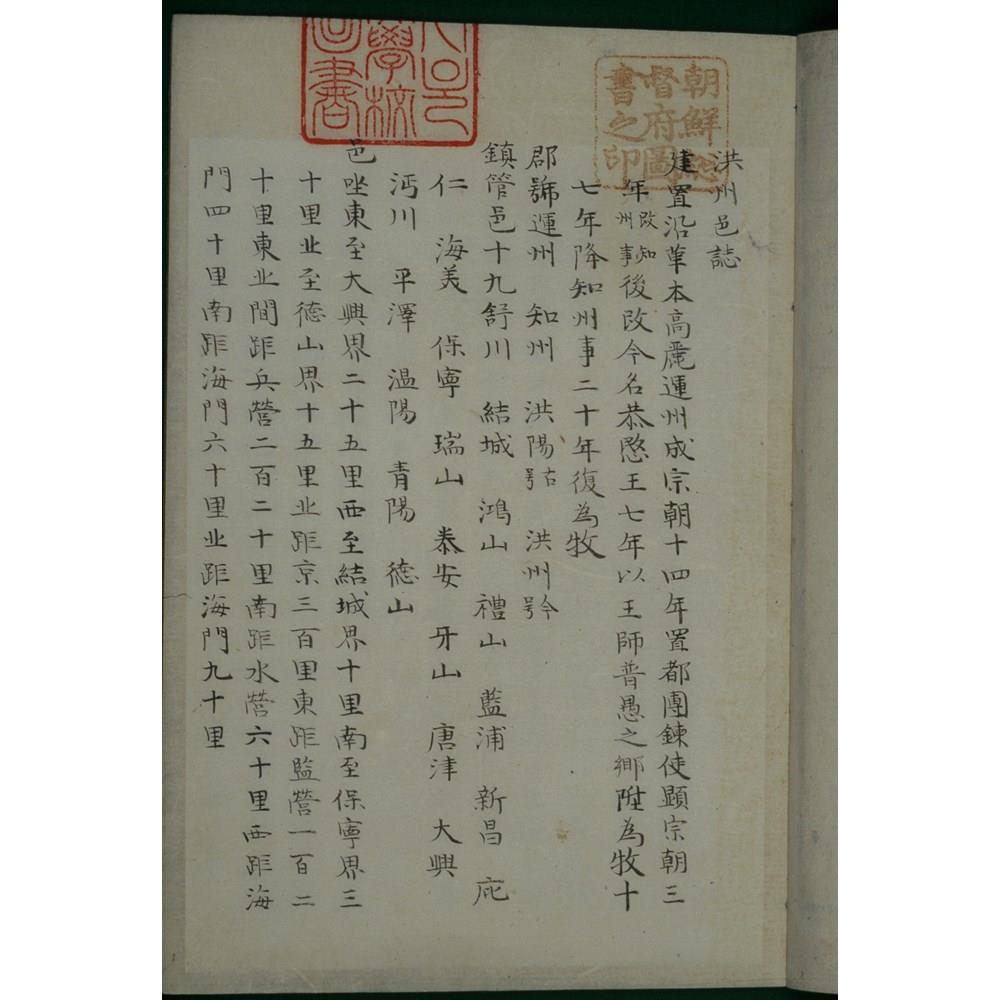 洪州邑誌
建置沿革本高麗運州成宗朝十四年置都團鍊使顯宗朝三
年改知州事後改今名恭愍王七年以王師普愚之鄉陞為牧十
七年降知州事二十年復為牧
郡號運州 知州 洪陽古號 洪州今號
鎮管邑十九舒川 結城 鴻山 禮山 藍浦 新昌 庇
仁 海美 保寧 瑞山 泰安 牙山 唐津 大興
沔川 平澤 温陽 青陽 德山
邑坐東至大興界二十五里西至結城界十里南至保寧界三
十里北至德山界十五里北距京三百里東距監營一百二
十里東北間距兵營二百二十里南距水營六十里西距海
門四十里南距海門六十里北距海門九十里
朝鮮總
督府圖
書之印
學校
圖書